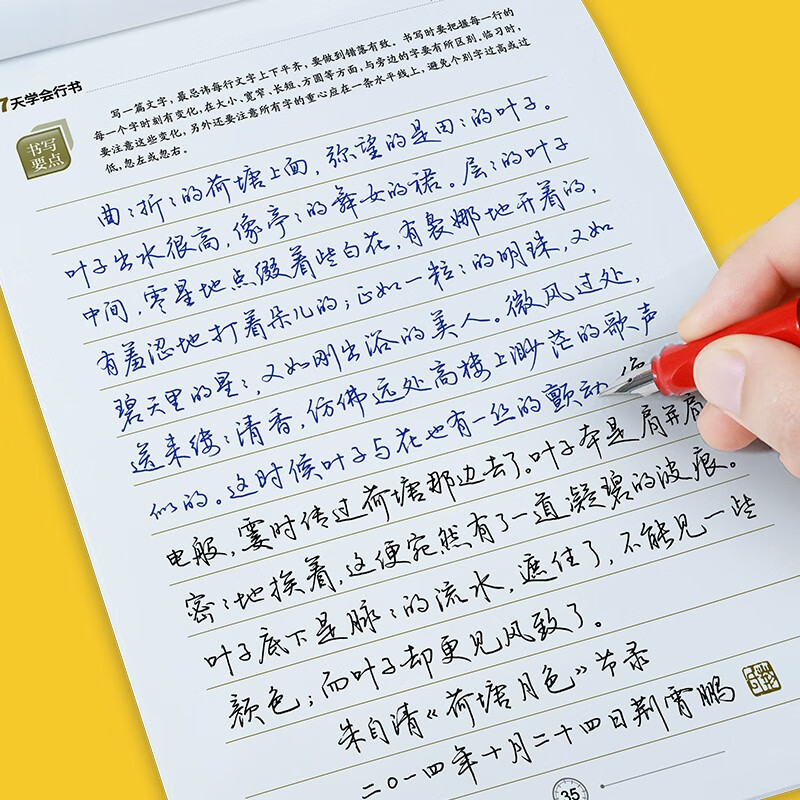 7天学会行书
书写
要点
写一篇文字，最忌讳每行文字上下平齐，要做到错落有致。书写时要把握每一行的
每一个字时刻有变化，在大小、宽窄、长短、方圆等方面，与旁边的字要有所区别。临习时，
要注意这些变化，另外还要注意所有字的重心应在一条水平线上，避免个别字过高或过
低，忽左或忽右。
曲:折:的荷塘上面，弥望的是田:的叶子。
叶子出水很高，像亭:的舞女的裙。层:的叶子
中间，零星地点缀着些白花，有袅娜地开着的，
有羞涩地打着朵儿的；正如一粒:的明珠，又如
碧天里的星:，又如刚出浴的美人。微风过处，
送来缕:清香，仿佛远处高楼上渺茫的歌声
似的。这时候叶子与花也有一丝的颤动
电般，霎时传过荷塘那边去了。叶子本是肩并肩
密:地挨着，这便宛然有了一道凝碧的波痕。
叶子底下是脉:的流水，遮住了，不能见一些
颜色；而叶子却更见风致了。
朱自清《荷塘月色》节录
二〇一四年十月二十四日荆霄鹏
35